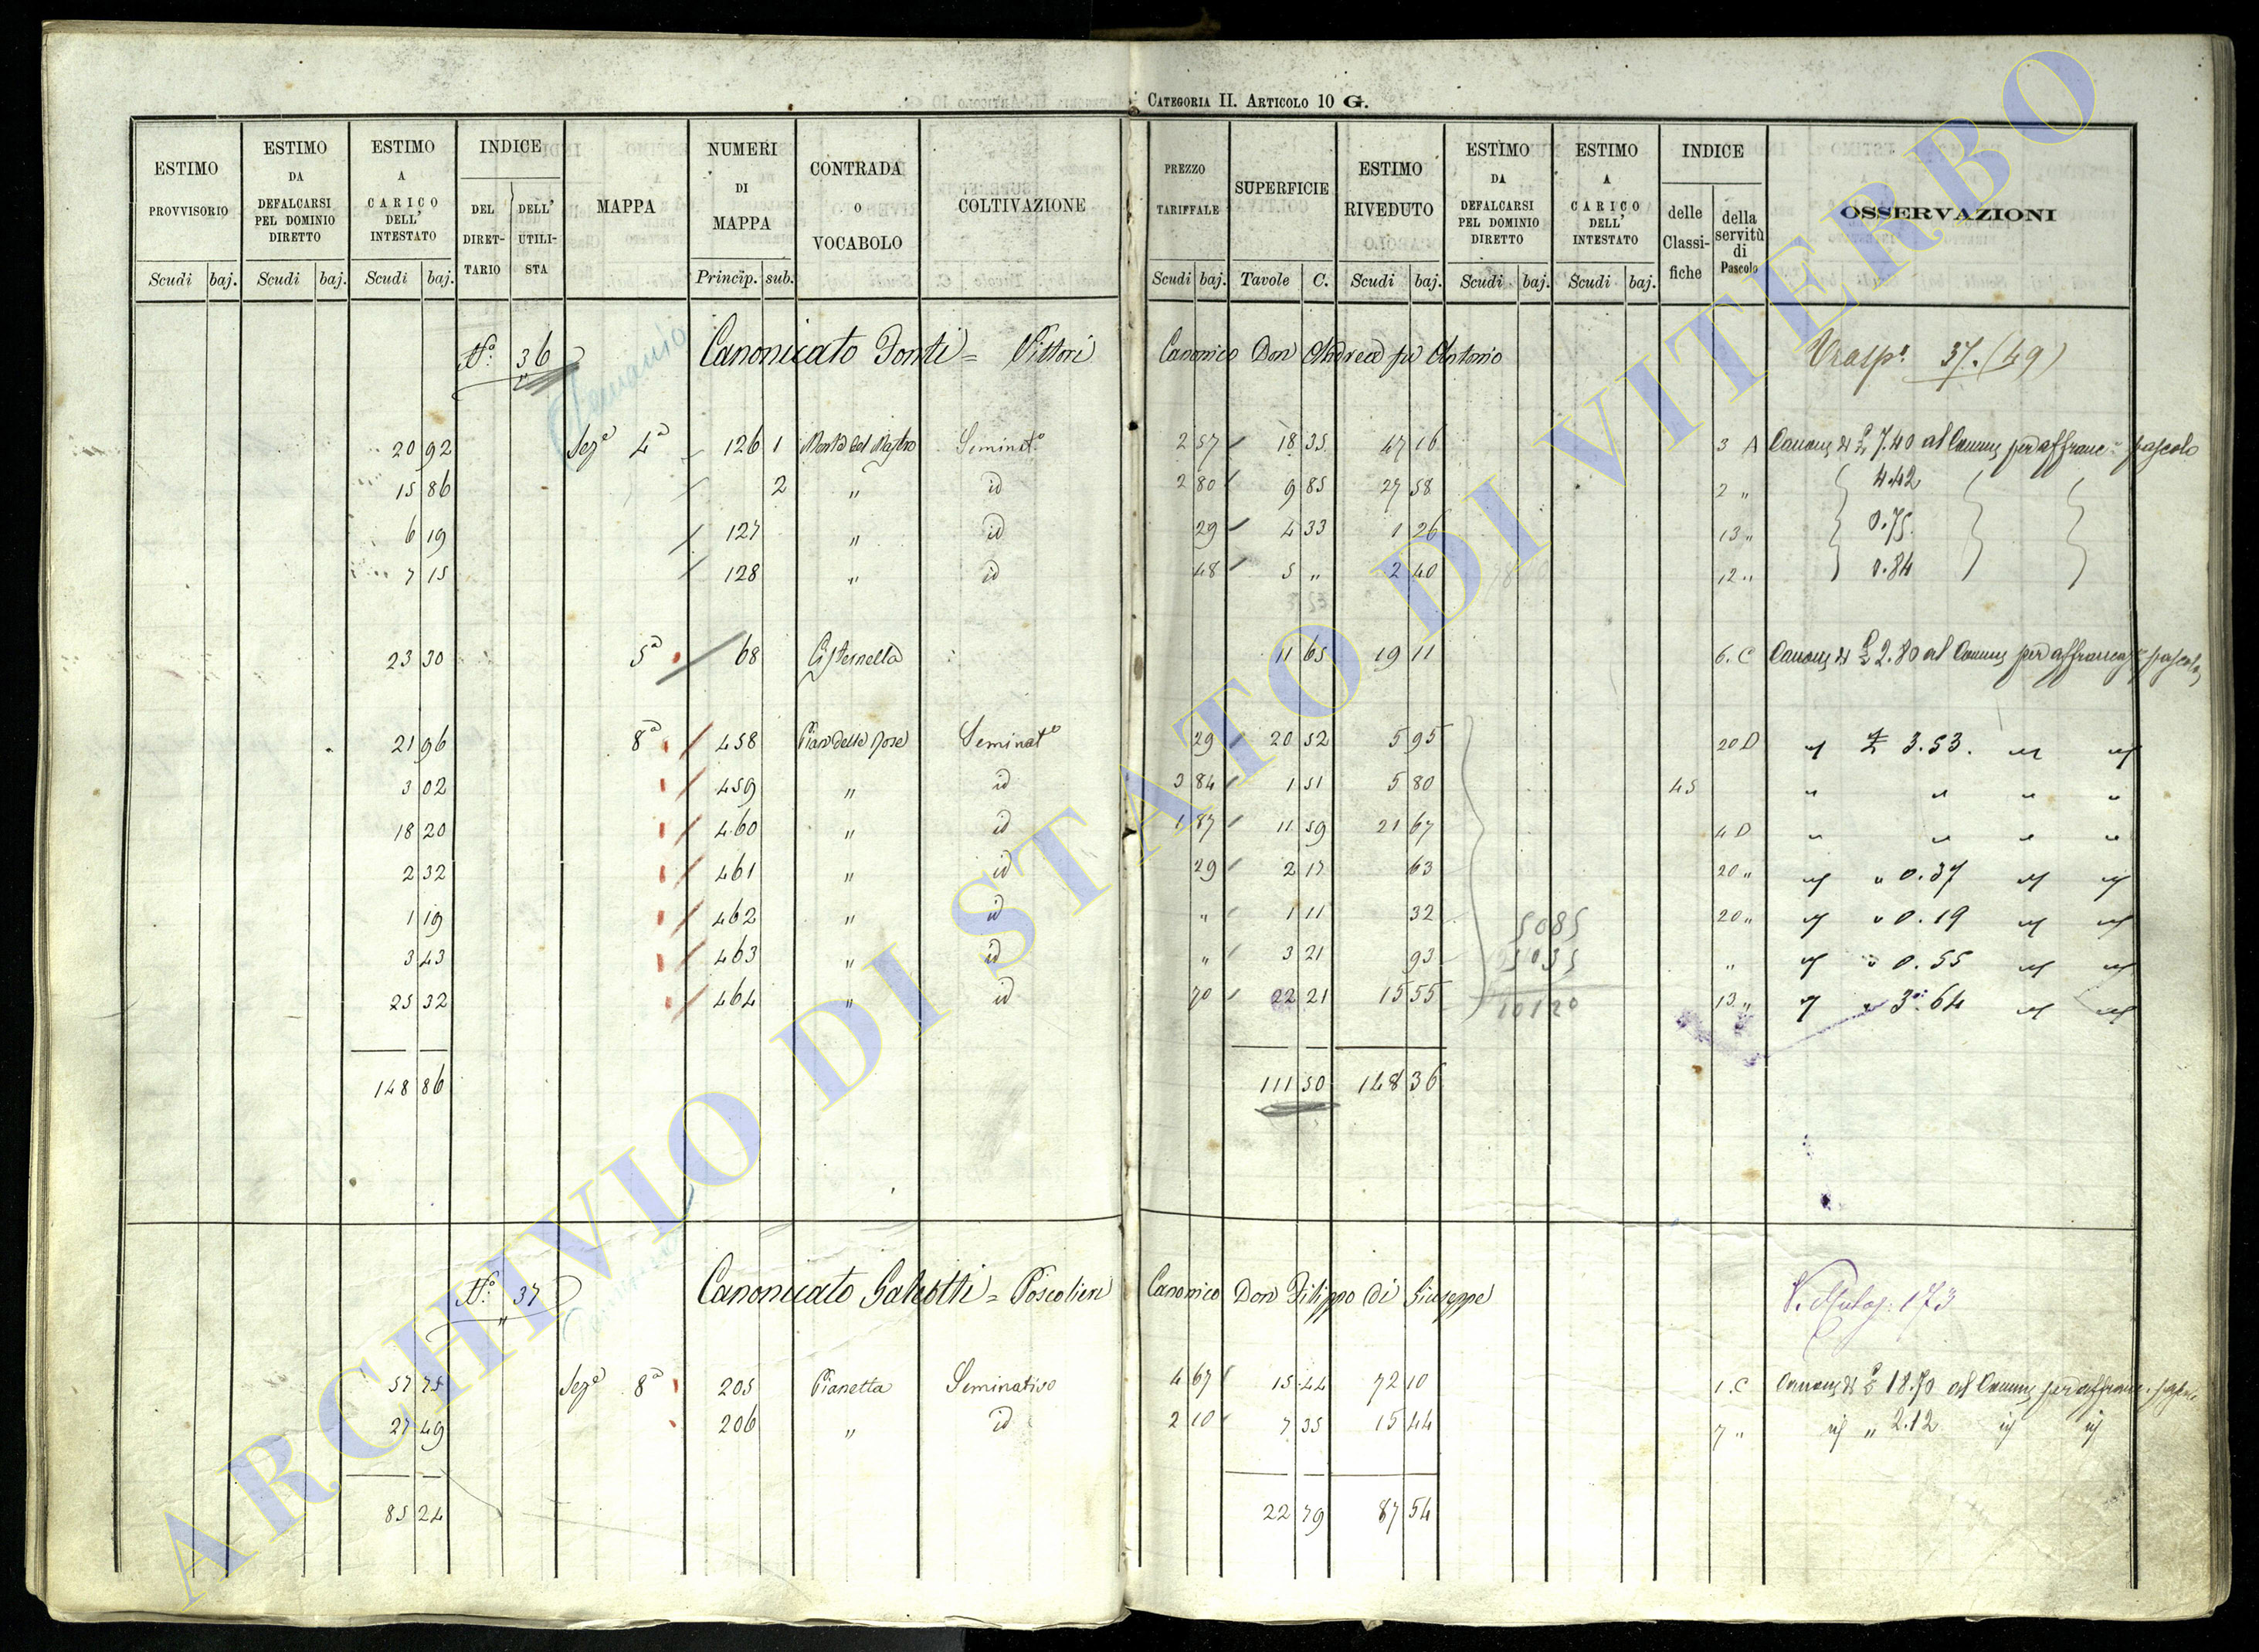 CATEGORIA II. ARTICOLO 10 G.
ESTIMO PROVVISORIO Scudi baj.
ESTIMO DA DEFALCARSI PEL DOMINIO DIRETTO Scudi baj.
ESTIMO A CARICO DELL' INTESTATO Scudi baj.
INDICE DEL DIRETTARIO DELL' UTILISTA
MAPPA
NUMERI DI MAPPA Princip. sub.
CONTRADA O VOCABOLO
COLTIVAZIONE
PREZZO TARIFFALE Scudi baj.
SUPERFICIE Tavole C.
ESTIMO RIVEDUTO Scudi baj.
ESTIMO DA DEFALCARSI PEL DOMINIO DIRETTO Scudi baj.
ESTIMO A CARICO DELL' INTESTATO Scudi baj.
INDICE delle Classifiche della servitù di Pascolo
OSSERVAZIONI
N.° 36 Canonicato Fonti = Vittori Canonico Don Andrea fu Antonio 37. (49)
Demanio
20 92 Seze 4a 126 1 Seminat.o 2 57 18 35 47 16 3 A Canone di £ 7.40 al Comune per affranc.e pascolo
15 86 2 " id 2 80 9 85 27 58 2 " 4.42
6 19 127 " id 29 4 33 1 26 13 " 0.75
7 15 128 " id 48 5 " 2 40 12 " 0.84
23 30 5a 68 Cisternella 11 65 19 11 6. C Canone di £ 2.80 al Comune per pascolo
21 96 8a 458 Pian delle Seminat.o 29 20 52 5 95 20 D £ 3.53.
3 02 459 " id 3 84 1 51 5 80 45 " " " "
18 20 460 " id 1 87 11 59 21 67 4 D " " " "
2 32 461 " id 29 2 17 63 20 " " 0.37
1 19 462 " id " 1 11 32 20 " " 0.19
3 43 463 " id " 3 21 93 " " 0.55
25 32 464 " id 70 22 21 15 55 13 " " 3.64
5085
5035
10120
148 86 111 50 148 36
N.° 37 Canonicato Galeotti = Poscolieri Canonico Don Filippo di Giuseppe 173
57 75 Seze 8a 205 Pianetta Seminativo 4 67 15 44 72 10 1. C Canone di £ 18.70 al Comune per affranc.
27 49 206 " id 2 10 7 35 15 44 7 " id " 2.12 id id
85 24 22 79 87 54
ARCHIVIO DI STATO DI VITERBO